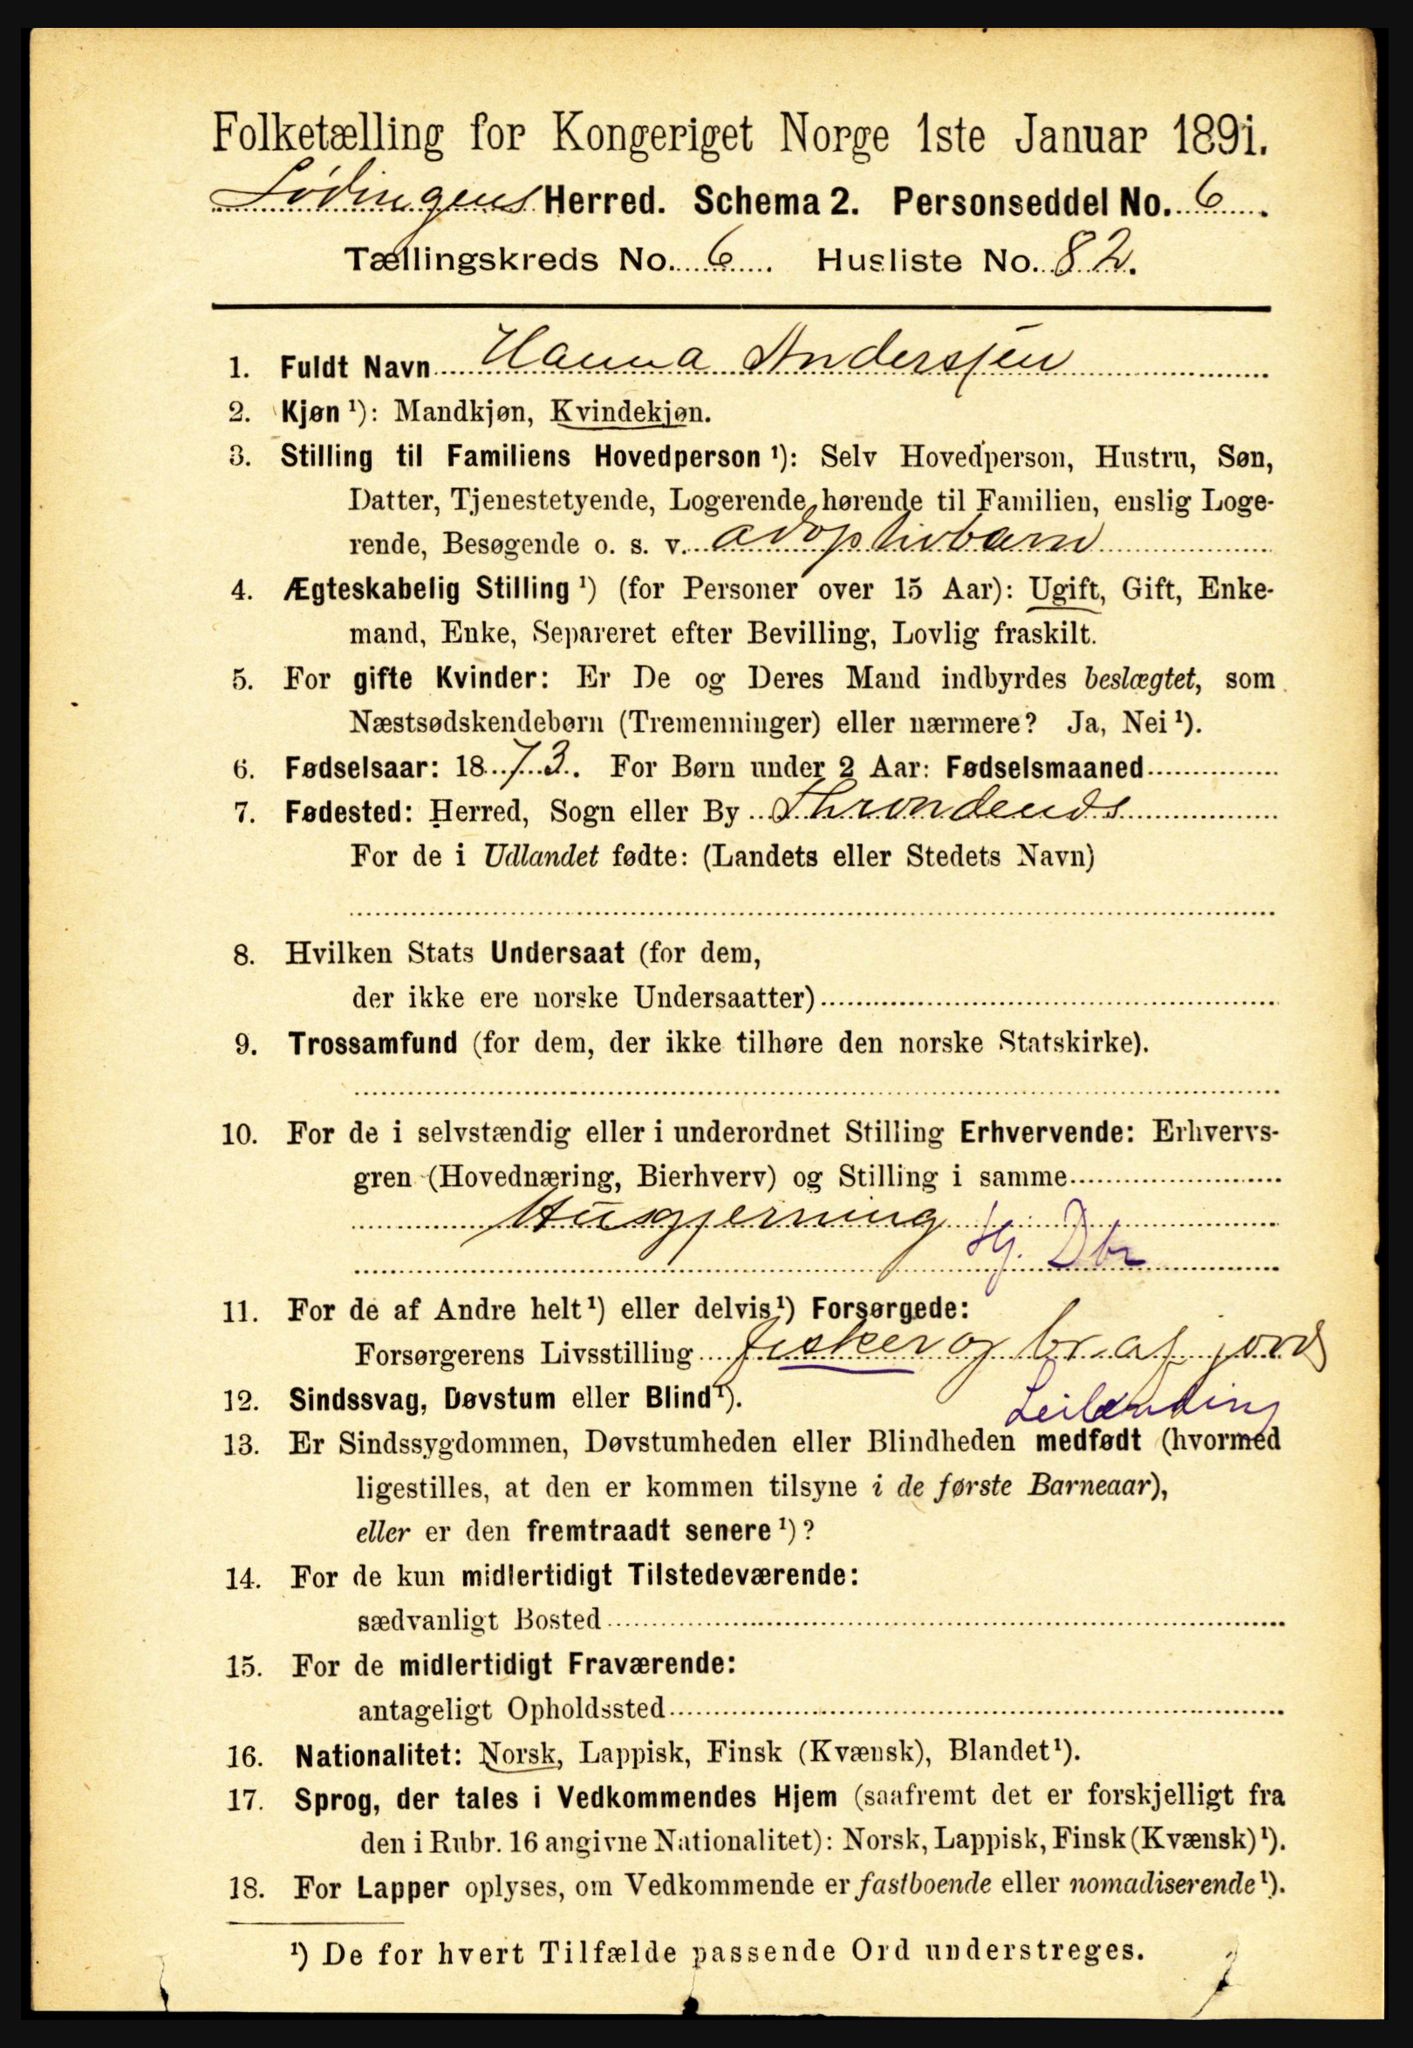 Folketælling for Kongeriget Norge 1ste Januar 1891.
Lødingens Herred. Schema 2. Personseddel No. 6.
Tællingskreds No. 6. Husliste No. 82.
1. Fuldt Navn Hanna Anderssen
2. Kjøn ¹): Mandkjøn, Kvindekjøn.
3. Stilling til Familiens Hovedperson ¹): Selv Hovedperson, Hustru, Søn,
Datter, Tjenestetyende, Logerende hørende til Familien, enslig Loge-
rende, Besøgende o. s. v. adoptivbarn
4. Ægteskabelig Stilling ¹) (for Personer over 15 Aar): Ugift, Gift, Enke-
mand, Enke, Separeret efter Bevilling, Lovlig fraskilt.
5. For gifte Kvinder: Er De og Deres Mand indbyrdes beslægtet, som
Næstsødskendebørn (Tremenninger) eller nærmere? Ja, Nei ¹).
6. Fødselsaar: 1873. For Børn under 2 Aar: Fødselsmaaned
7. Fødested: Herred, Sogn eller By Throndenæs
For de i Udlandet fødte: (Landets eller Stedets Navn)
8. Hvilken Stats Undersaat (for dem,
der ikke ere norske Undersaatter)
9. Trossamfund (for dem, der ikke tilhøre den norske Statskirke).
10. For de i selvstændig eller i underordnet Stilling Erhvervende: Erhvervs-
gren (Hovednæring, Bierhverv) og Stilling i samme
Husgjerning
Hj. Dtr
11. For de af Andre helt ¹) eller delvis ¹) Forsørgede:
Forsørgerens Livsstilling fisker og br. af jord
12. Sindssvag, Døvstum eller Blind ¹).
Leilending
13. Er Sindssygdommen, Døvstumheden eller Blindheden medfødt (hvormed
ligestilles, at den er kommen tilsyne i de første Barneaar),
eller er den fremtraadt senere ¹)?
14. For de kun midlertidigt Tilstedeværende:
sædvanligt Bosted
15. For de midlertidigt Fraværende:
antageligt Opholdssted
16. Nationalitet: Norsk, Lappisk, Finsk (Kvænsk), Blandet ¹).
17. Sprog, der tales i Vedkommendes Hjem (saafremt det er forskjelligt fra
den i Rubr. 16 angivne Nationalitet): Norsk, Lappisk, Finsk (Kvænsk) ¹).
18. For Lapper oplyses, om Vedkommende er fastboende eller nomadiserende ¹).
¹) De for hvert Tilfælde passende Ord understreges.